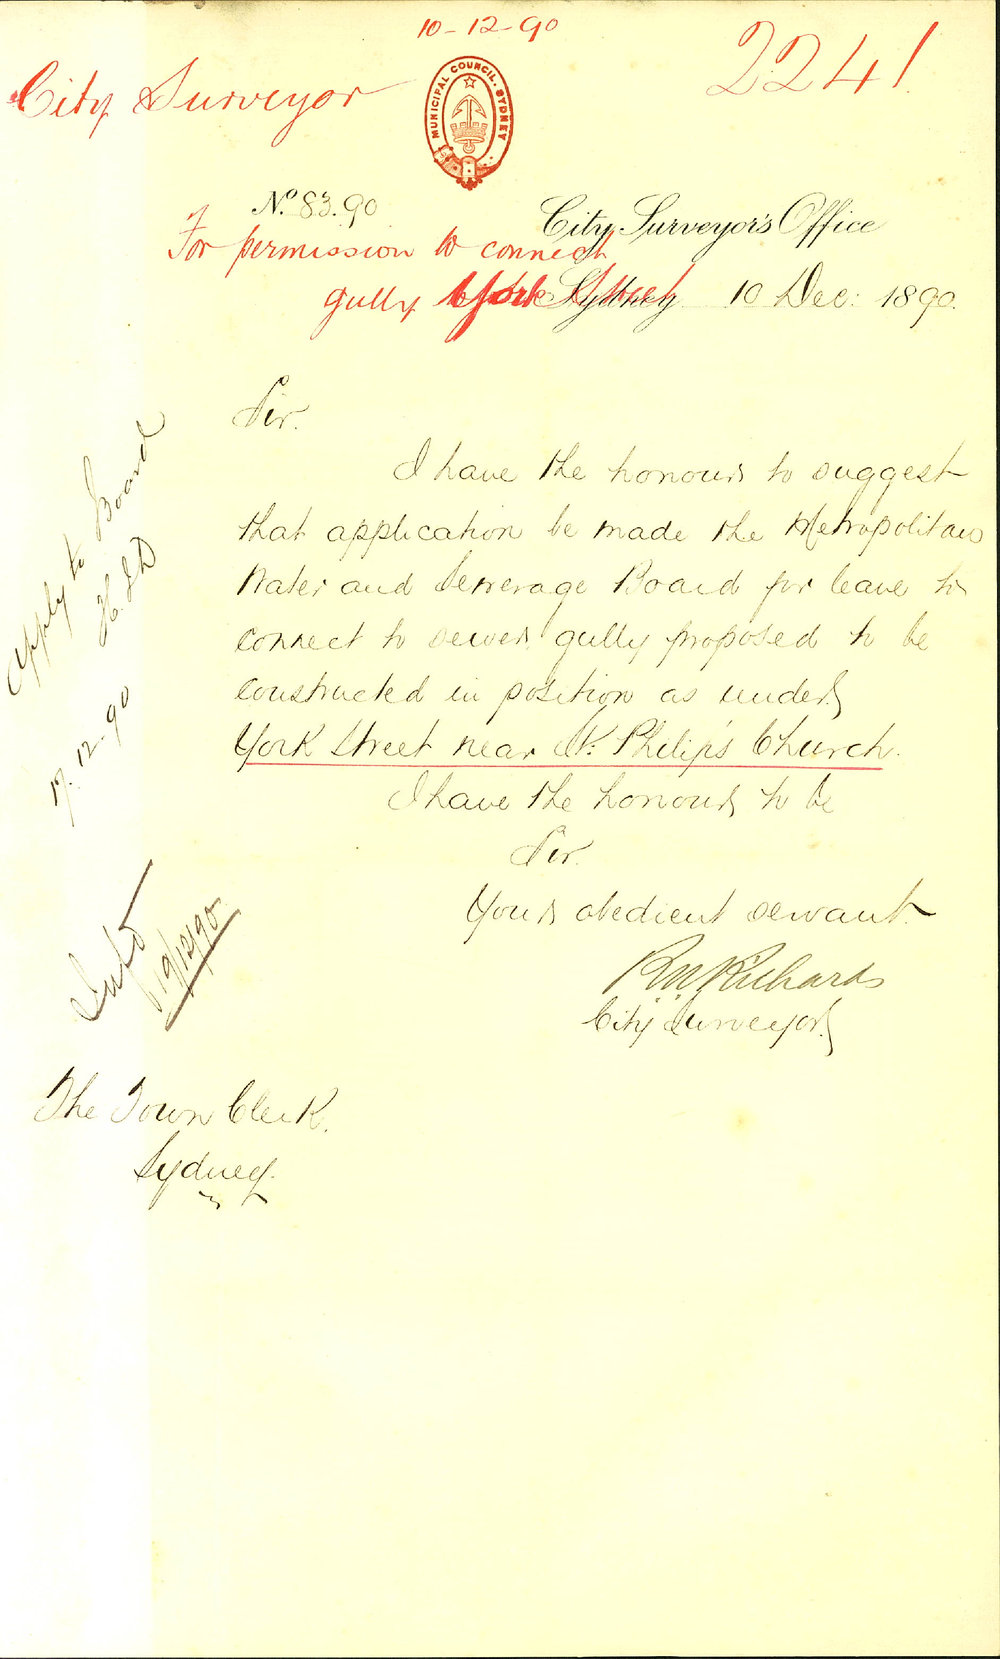 10-12-90
City Surveyor
2241
MUNICIPAL COUNCIL. SYDNEY
No. 83.90
City Surveyor's Office
For permission to connect
gully York Street
Sydney 10 Dec: 1890.
Sir.
I have the honour to suggest
that application be made the Metropolitan
Water and Sewerage Board for leave to
connect to sewer gully proposed to be
constructed in position as under
York Street near St. Philip's Church.
I have the honour to be
Sir.
Your obedient servant.
RW Richards
City Surveyor
Apply to Board
17.12.90
19/12/90.
The Town Clerk.
Sydney.